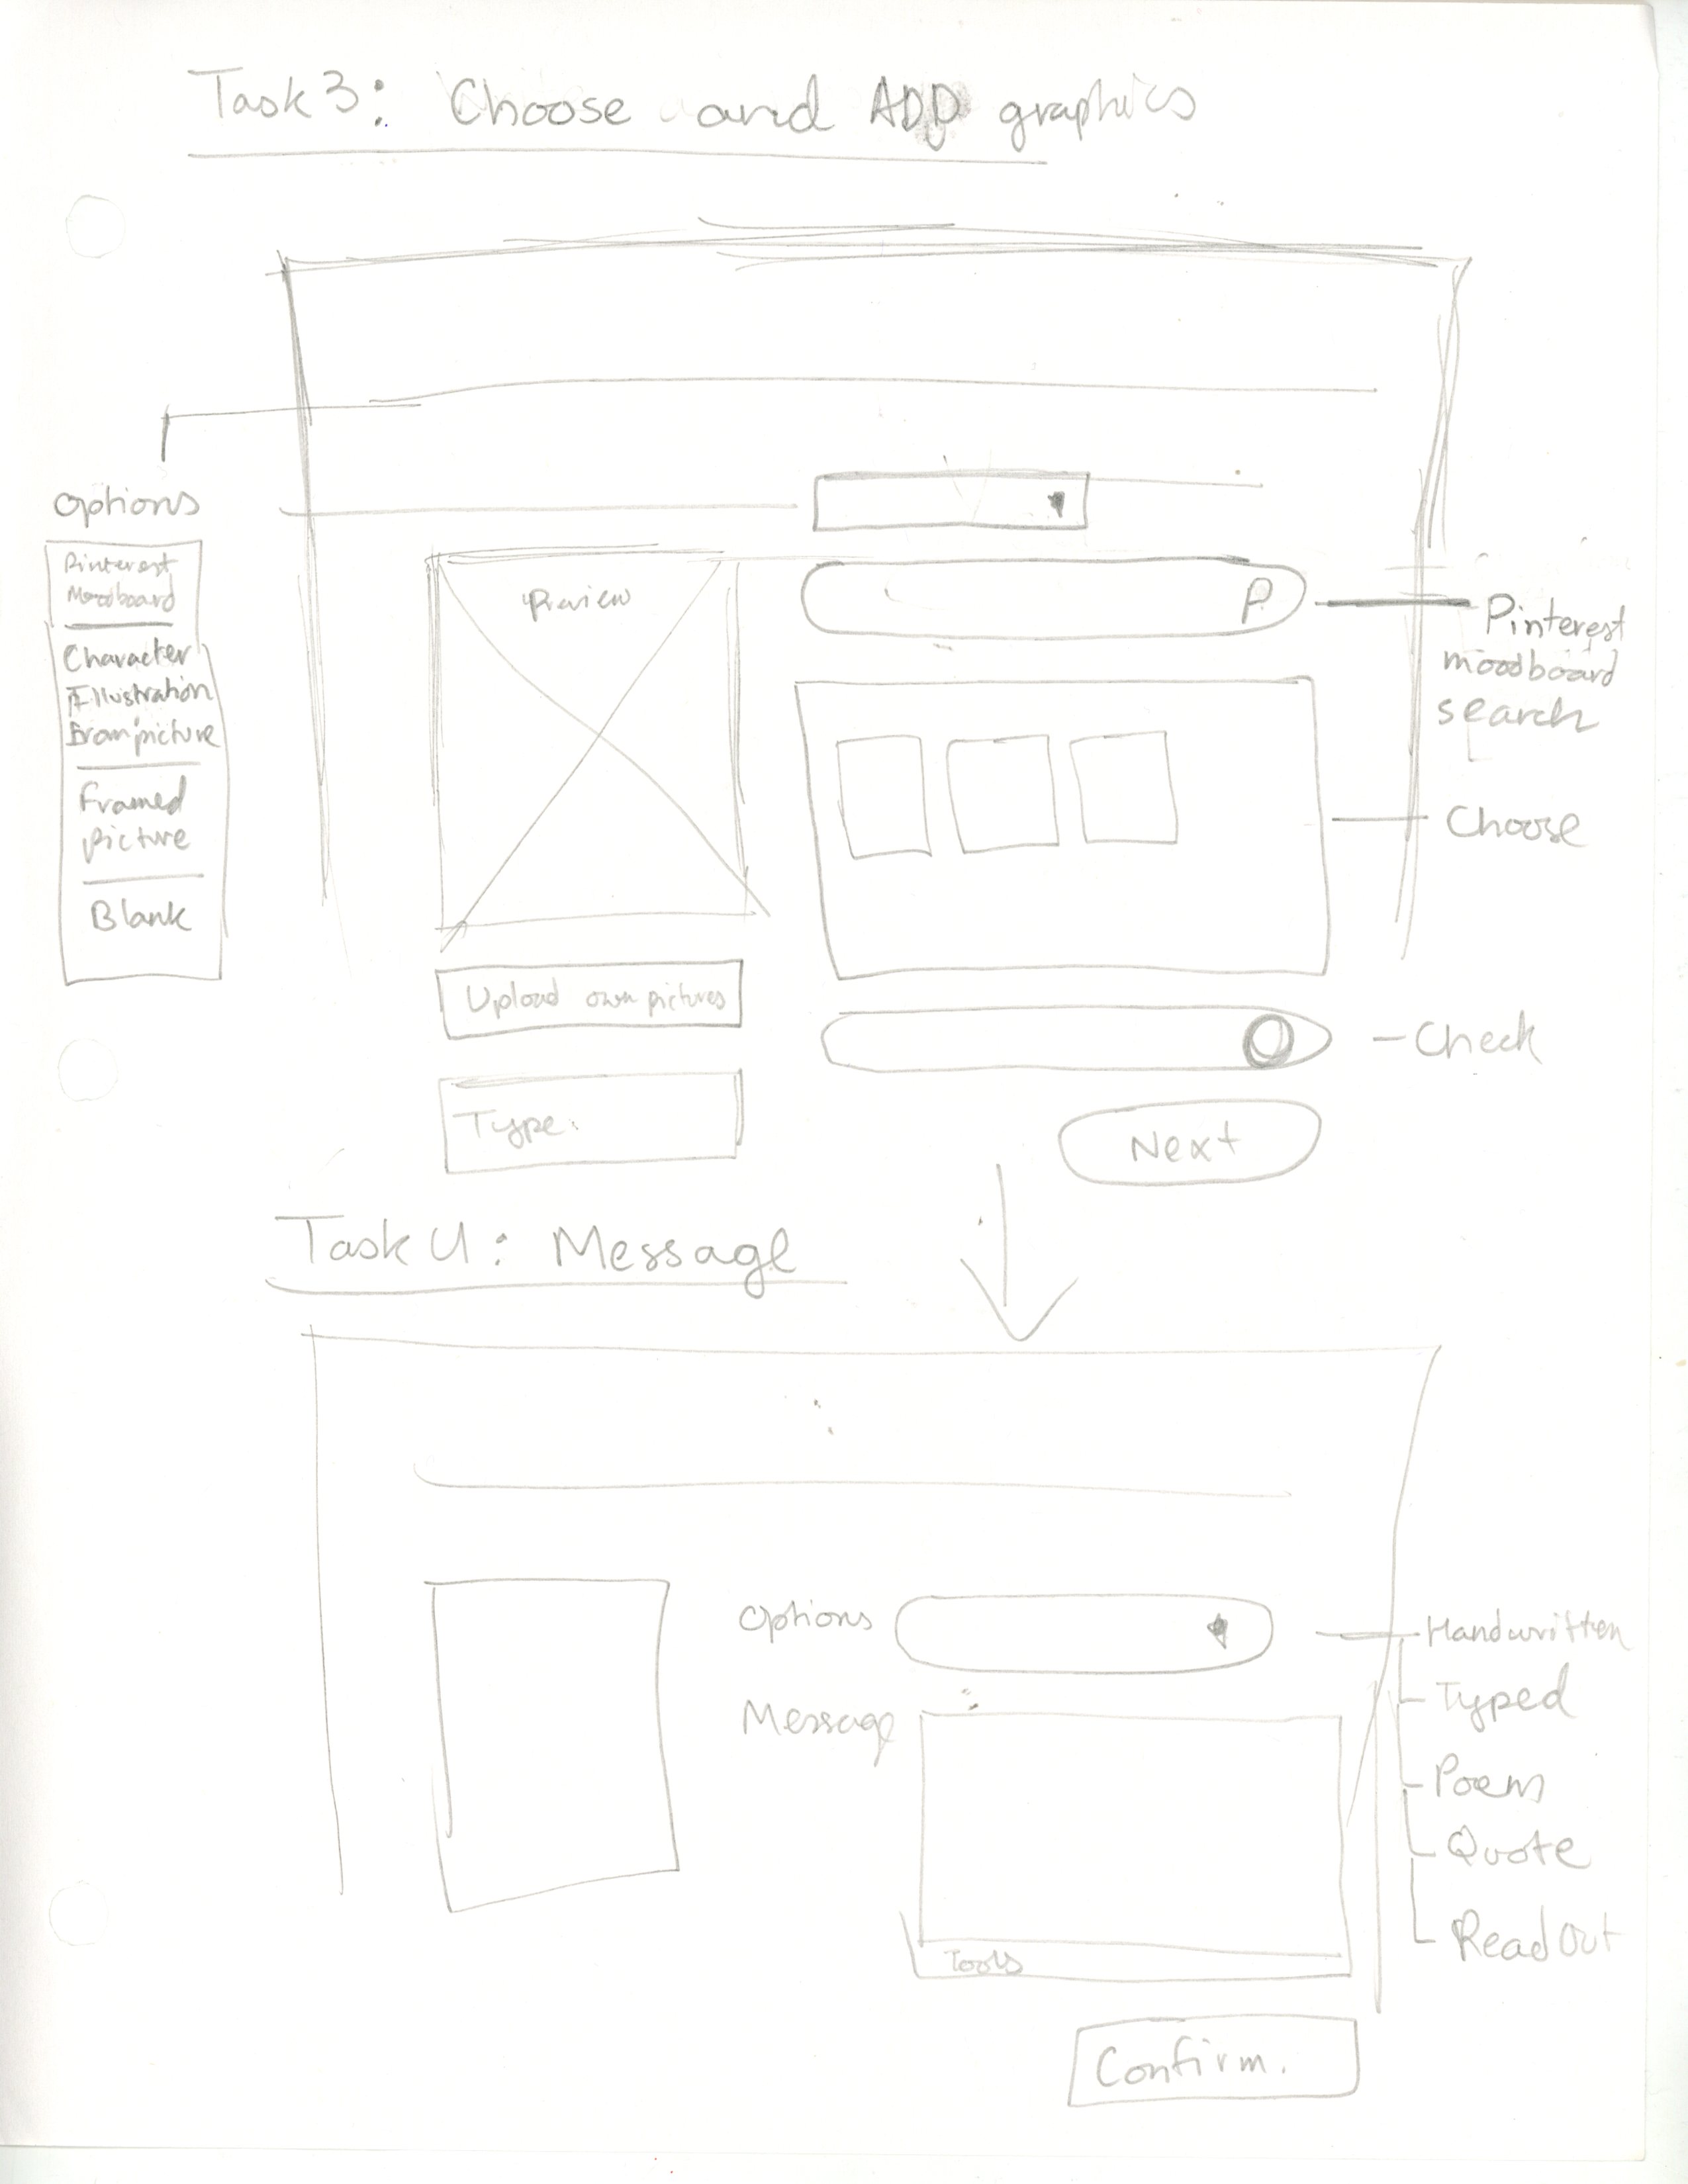 Task 3: Choose and ADD graphics
Options
Pinterest
Moodboard
Character
Illustration
from picture
Framed
picture
Blank
Preview
Pinterest
moodboard
search
Choose
Upload own pictures
Check
Type:
Next
Task 4: Message
Options
Handwritten
Message
Typed
Poem
Quote
Read Out
Tools
Confirm.